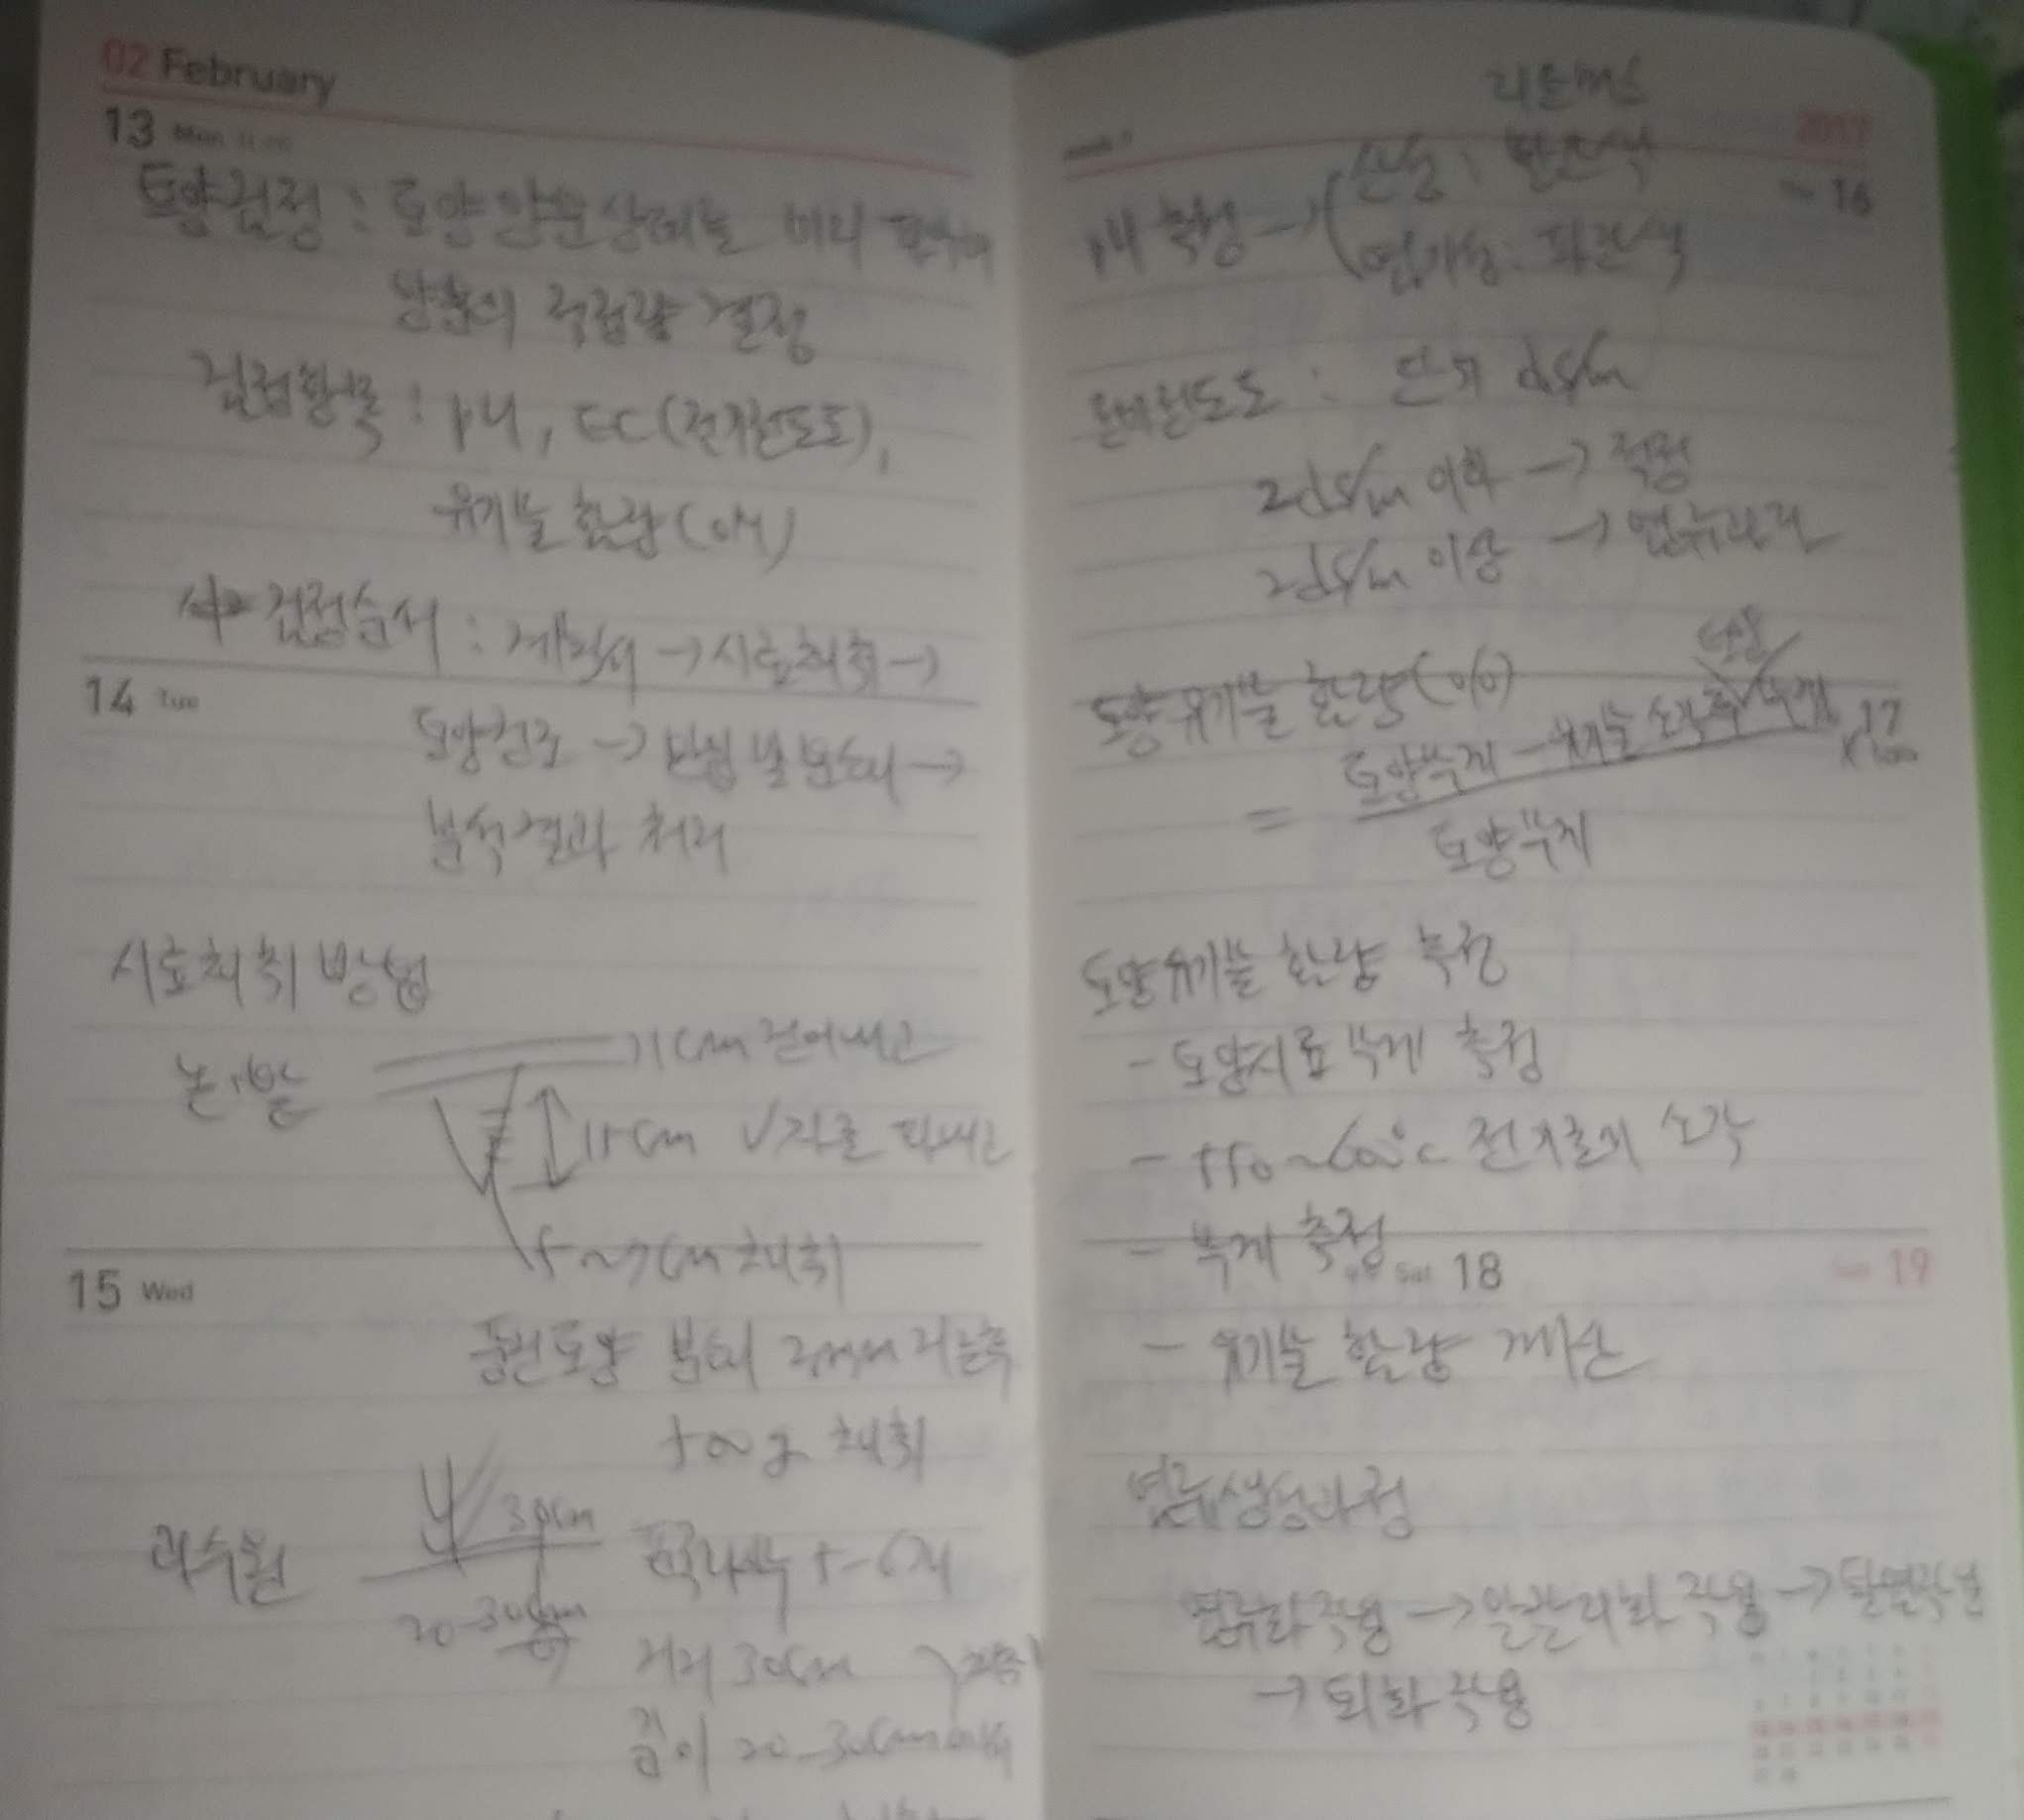 02 February
13 Mon
토양검정 : 토양 양분상태를 미리 파악하여
양분의 적량 결정
검정항목 : pH, EC (전기전도도),
유기물 함량 (OM)
검정순서 : 계획서 → 시료채취 →
14 Tue
토양건조 → 및 분쇄 →
분석결과 처리
시료채취 방법
논, 밭
1cm 걷어내고
15cm V자로 파내고
5~7cm 채취
15 Wed
풍건토양 분쇄 2mm
500g 채취
과수원
30cm
5-6개
20-30cm
거리 30cm
깊이 20-30cm
리트머스
2017
16
pH 측정 → 산성 : 빨간색
염기성 : 파란색
전기전도도 : 단위 dS/m
2dS/m 이하 → 적정
2dS/m 이상 → 염류과적
토양유기물 함량 (%)
토양
17
= 토양무게 - 유기물 소각 후 무게 × 100
토양무게
토양유기물 함량 측정
- 토양시료 무게 측정
- 550~600℃ 전기로에 소각
- 무게 측정
Sat 18
Sun 19
- 유기물 함량 계산
염류생성과정
염류화 작용 → 알칼리화 작용 → 탈염작용
→ 퇴화 작용